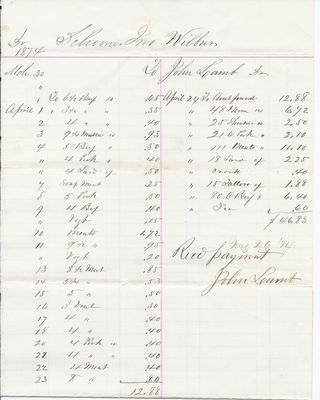 Dr Schooner Jno Wilbur
1874
To John Lamb Dr
Mch 30
" 1 To 6½ Beef " .65
April 1 " 5¼ " " .40
2 " 4 " " .40
3 " 9¼ Mutton " .93
4 " 5 Beef " .50
" 4 Pork " .40
" 4 Lard .50
7 Soup Meat .25
8 " 5 Pork .50
9 " 4 Beef .40
" Vegt .15
10 Meats 1.72
11 " 9½ " .95
" Vegt .20
13 8½ Meat .85
14 " 5¼ " .53
15 " 5 " .50
16 " 3 .30
17 " 4 " .40
18 " 4 " .40
20 " 4 Pork " .40
22 " 4 " .40
22 " 4 Meat .40
23 " 8 " .80
12.88
April 24 To Amt forward 12.88
" 48 Ham " 6.72
" 25 " 2.50
" 21 Pork " 2.10
" 111 Meats " 11.10
" 18 Lard 2.25
" crock .40
" 15 Tallow 1.88
" 80 Beef 6.40
" Ice .60
$46.83
May 20 '74
Recd payment
John Lamb